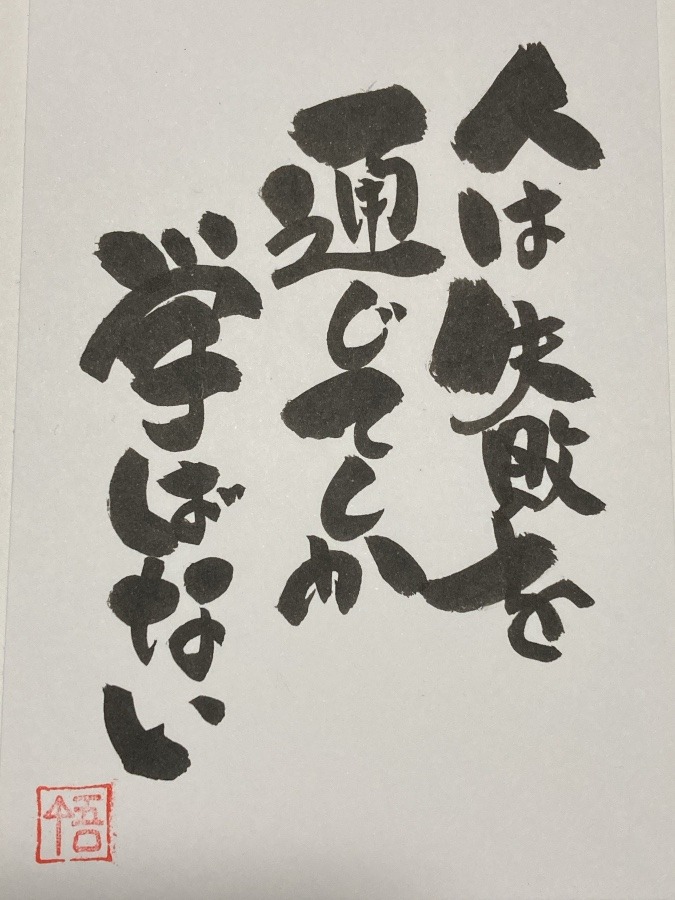 人は失敗を
通じてしか
学ばない
悟